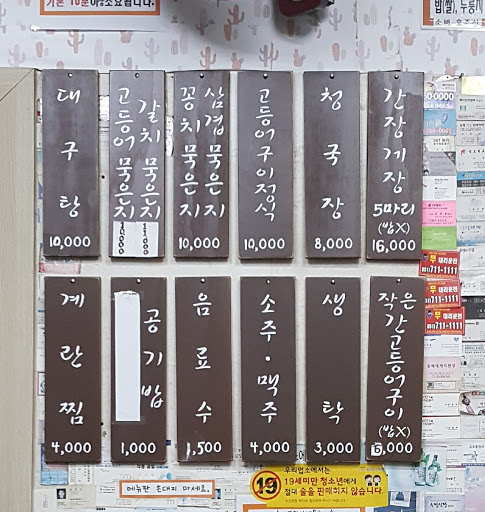 기본 10분이상소요됩니다.
밥(쌀), 누룽지
대구탕
10,000
갈치 묵은지
고등어 묵은지
11,000
10,000
삼겹 묵은지
꽁치 묵은지
10,000
고등어구이정식
10,000
청국장
8,000
간장게장
5마리
(밥X)
16,000
계란찜
4,000
공기밥
1,000
음료수
1,500
소주·맥주
4,000
생탁
3,000
작은
간고등어구이
(밥X)
6,000
대리운전
711-1111
대리운전
711-1111
메뉴판 손대지 마세요.
19
우리업소에서는
19세미만 청소년에게
절대 술을 판매하지 않습니다.